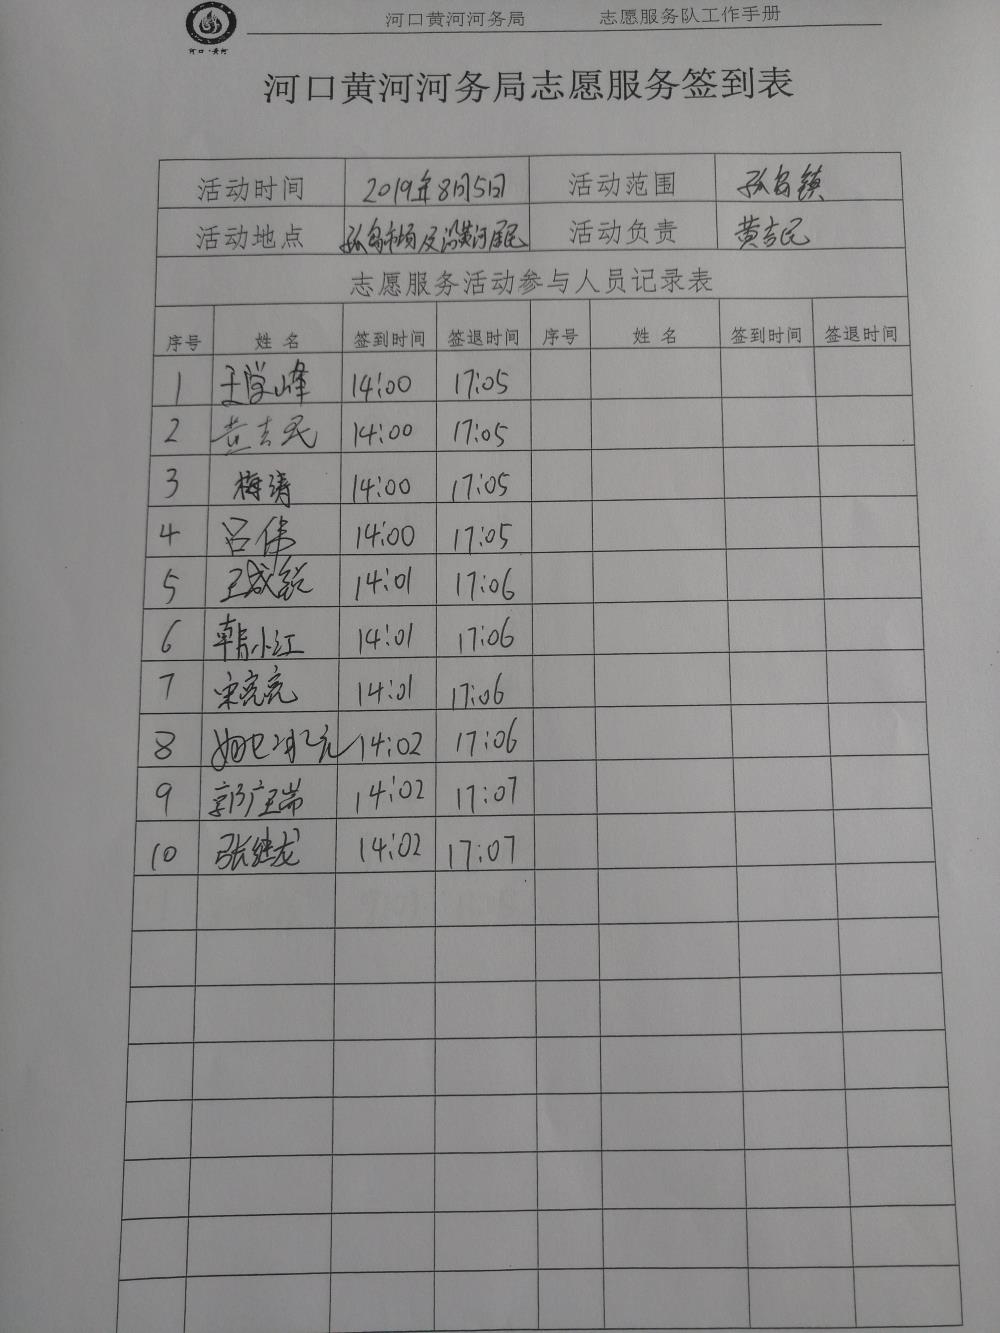 河口黄河河务局 志愿服务队工作手册
河口·黄河
河口黄河河务局志愿服务签到表
活动时间 2019年8月5日 活动范围 孤岛镇
活动地点 孤岛市场及沿黄河居民 活动负责 黄吉民
志愿服务活动参与人员记录表
序号 姓名 签到时间 签退时间 序号 姓名 签到时间 签退时间
1 王学峰 14:00 17:05
2 黄吉民 14:00 17:05
3 梅涛 14:00 17:05
4 吕伟 14:00 17:05
5 王成锐 14:01 17:06
6 韩小江 14:01 17:06
7 宋亮亮 14:01 17:06
8 14:02 17:06
9 郭广瑞 14:02 17:07
10 张继龙 14:02 17:07